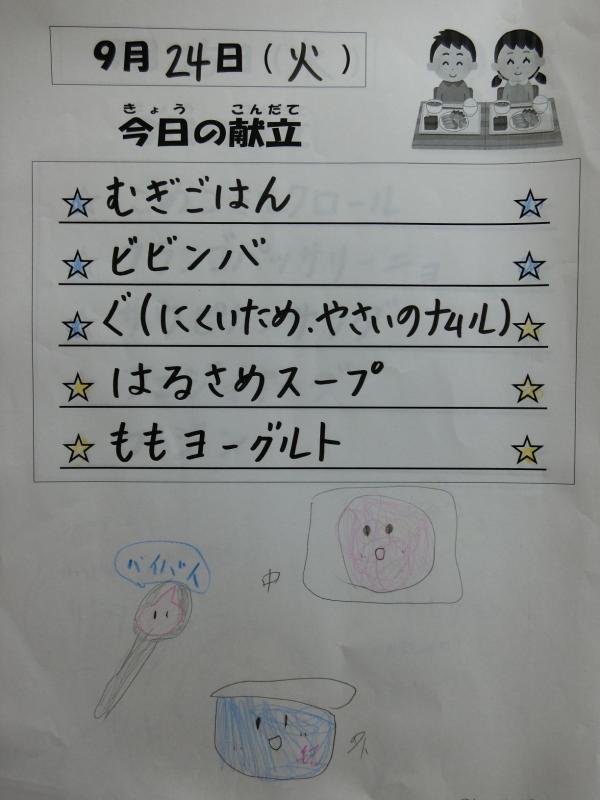 9月24日(火)
きょう こんだて
今日の献立
むぎごはん
ビビンバ
ぐ(にくいため.やさいのナムル)
はるさめスープ
ももヨーグルト
バイバイ
中
外